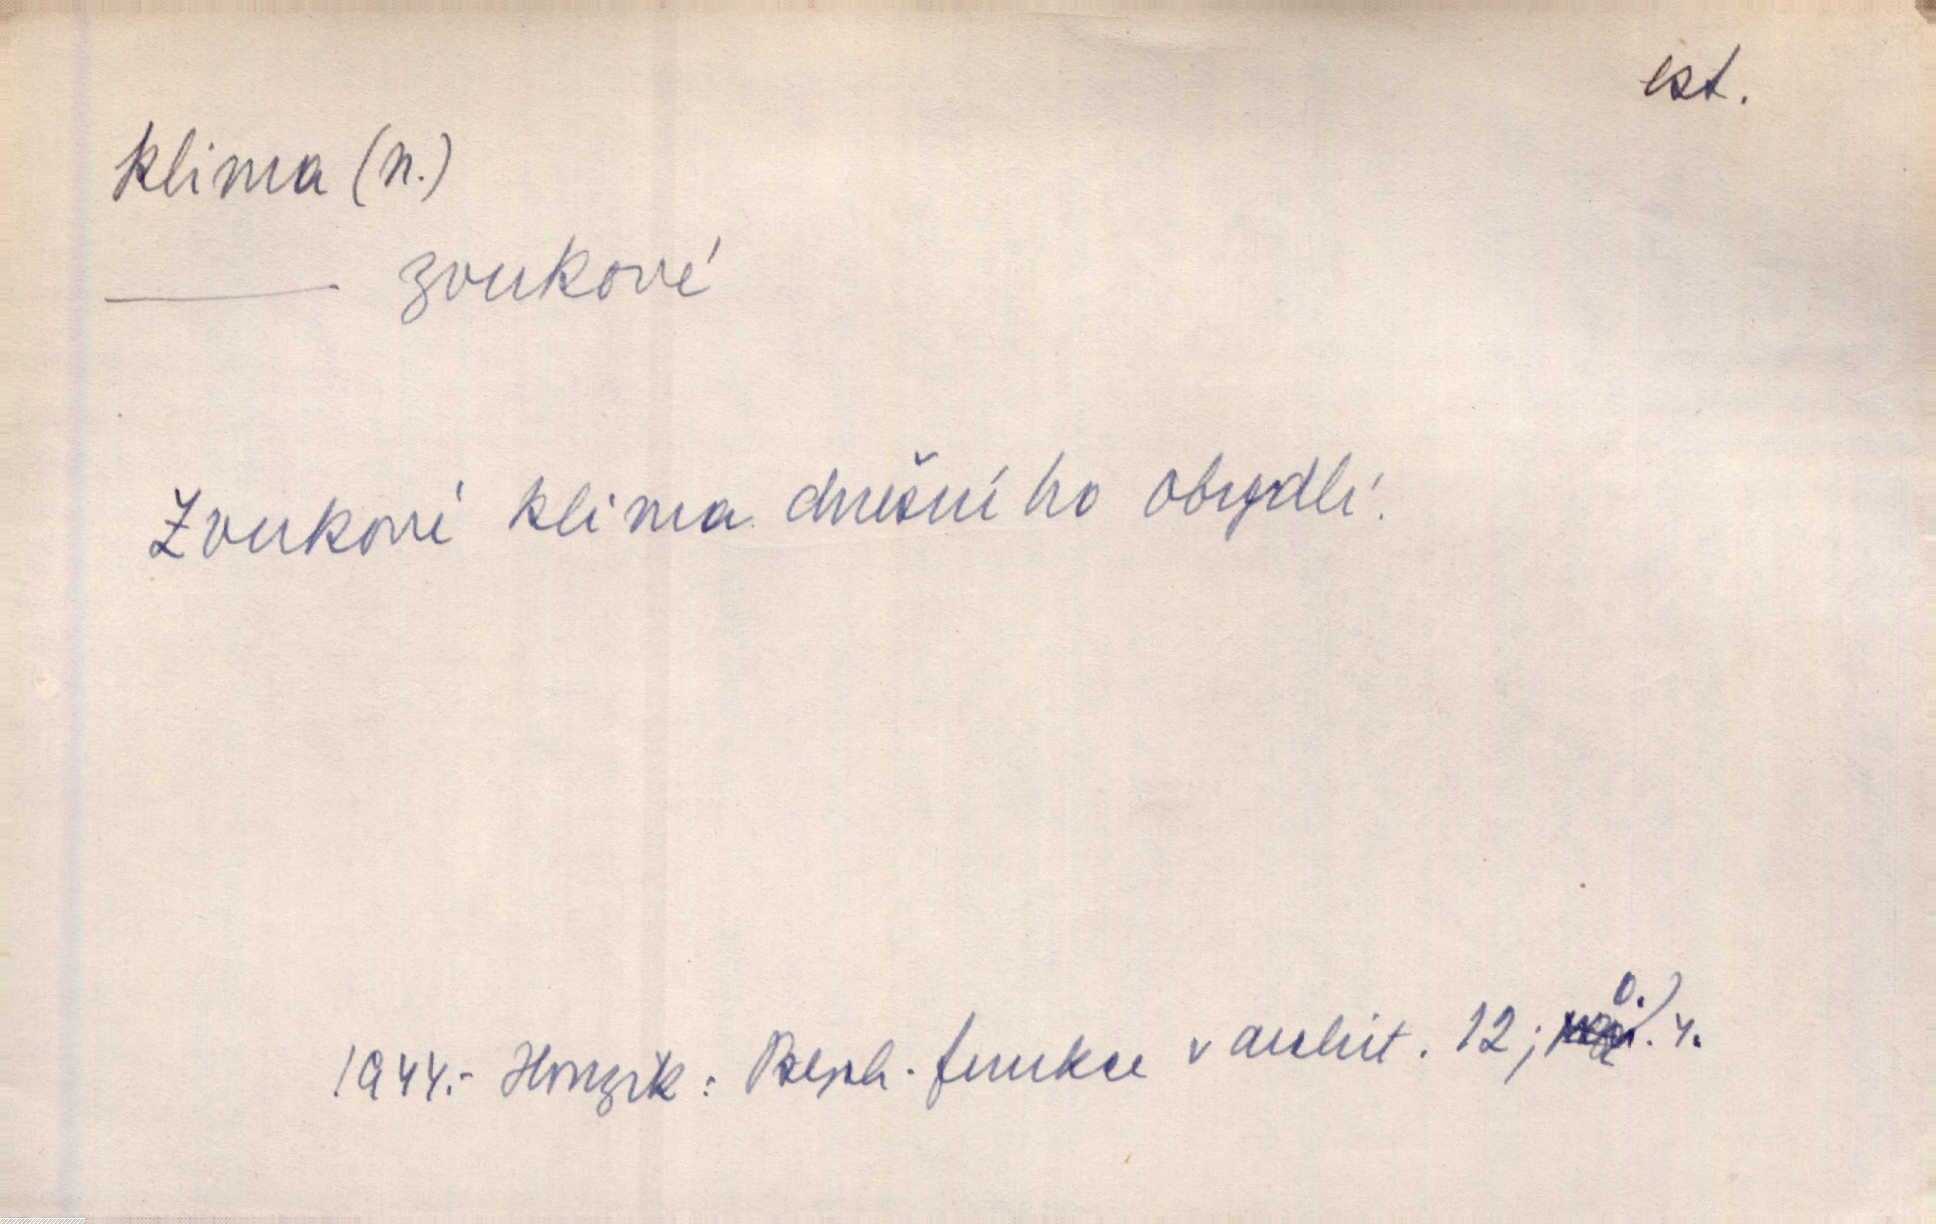 est.
klima (n.)
——— zvukové
Zvukové klima dnešního obydlí.
1944.- Honzík: Psych. funkce v archit. 12; o.) 4.